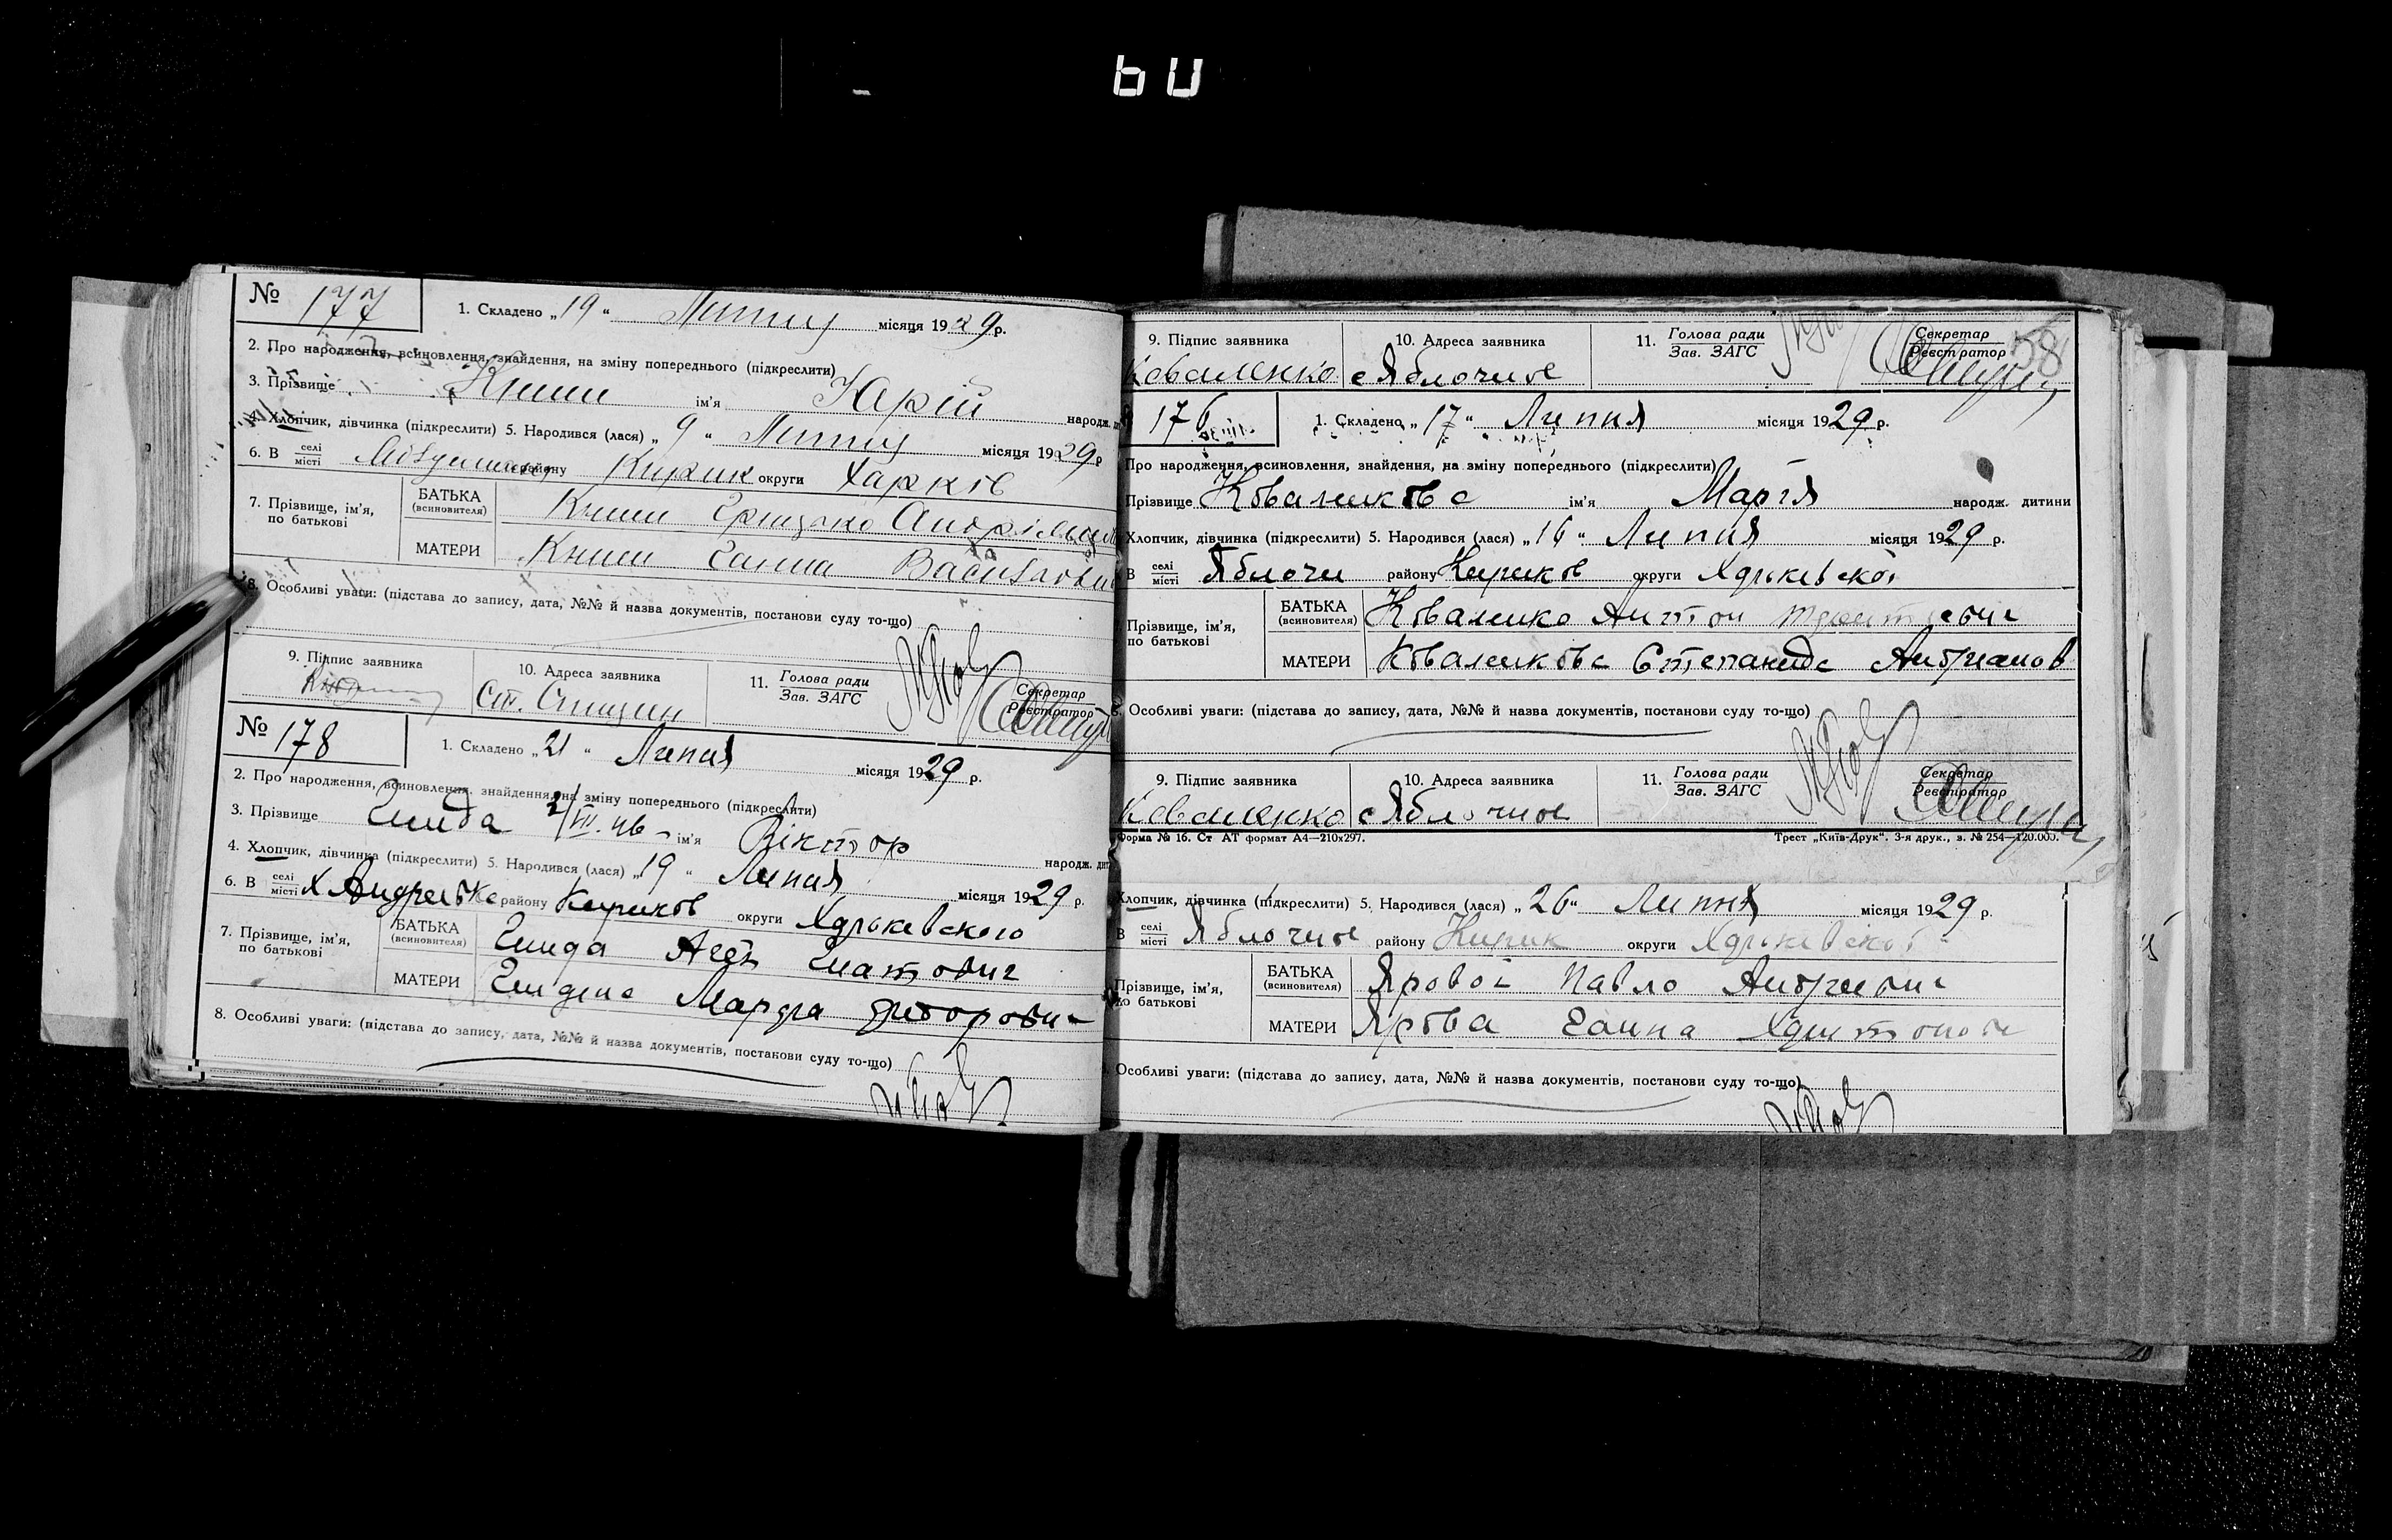 60
№ 177
1. Складено „19“ Липня місяця 1929 р.
2. Про народження, всиновлення, знайдення, на зміну попереднього (підкреслити)
3. Прізвище Книш ім'я Юрій народж.
4. Хлопчик, дівчинка (підкреслити) 5. Народився (лася) „9“ Липня місяця 1929 р
6. В селі місті району Кирик округи Харків
7. Прізвище, ім'я, по батькові
БАТЬКА (всиновителя) Книш Грицько
МАТЕРИ Книш Ганна
8. Особливі уваги: (підстава до запису, дата, №№ й назва документів, постанови суду то-що)
9. Підпис заявника
10. Адреса заявника
Ст.
11. Голова ради Зав. ЗАГС
Секретар Реєстратор
№ 178
1. Складено „21“ Липня місяця 1929 р.
2. Про народження, всиновлення, знайдення, на зміну попереднього (підкреслити)
3. Прізвище Гнида ім'я Віктор народж. дит
4. Хлопчик, дівчинка (підкреслити) 5. Народився (лася) „19“ Липня місяця 1929 р.
6. В селі місті х Андреевке району Кириков округи Харькевского
7. Прізвище, ім'я, по батькові
БАТЬКА (всиновителя) Гнида Гнатович
МАТЕРИ
8. Особливі уваги: (підстава до запису, дата, №№ й назва документів, постанови суду то-що)
9. Підпис заявника
Коваленко
10. Адреса заявника
с Яблочное
11. Голова ради Зав. ЗАГС
Секретар Реєстратор
58
176
1. Складено „17“ Липня місяця 1929 р.
Про народження, всиновлення, знайдення, на зміну попереднього (підкреслити)
Прізвище Коваленкова ім'я Марія народж. дитини
Хлопчик, дівчинка (підкреслити) 5. Народився (лася) „16“ Липня місяця 1929 р.
В селі місті Яблочн району Кириков округи Харькевской
Прізвище, ім'я, по батькові
БАТЬКА (всиновителя) Коваленко Антон
МАТЕРИ Коваленкова Степанида Андрианов
8. Особливі уваги: (підстава до запису, дата, №№ й назва документів, постанови суду то-що)
9. Підпис заявника
Коваленко
10. Адреса заявника
с Яблочное
11. Голова ради Зав. ЗАГС
Секретар Реєстратор
Форма № 16. Ст АТ формат А4—210х297.
Трест „Київ-Друк“. 3-я друк., з. № 254—120.000.
Хлопчик, дівчинка (підкреслити) 5. Народився (лася) „26“ Липня місяця 1929 р.
В селі місті Яблочное району Кирик округи Харькевской
Прізвище, ім'я, по батькові
БАТЬКА (всиновителя) Яровой Павло Андреевич
МАТЕРИ Ярова Ганна
Особливі уваги: (підстава до запису, дата, №№ й назва документів, постанови суду то-що)